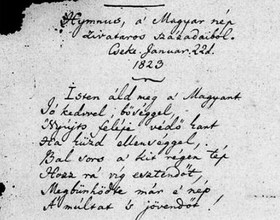 Hymnus, a' Magyar nép
Zivataros századaiból.
Cseke. Januar. 22d.
1823
Isten áld meg a' Magyart
Jó kedvvel, bőséggel,
Nyújts feléje védő kart
Ha küzd ellenséggel,
Bal sors a' kit régen tép
Hozz rá víg esztendőt,
Megbűnhődte már e' nép
A' múltat 's jövendőt!